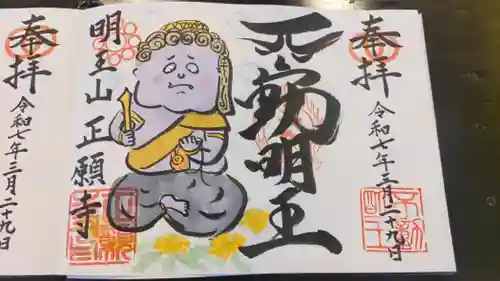 奉拝
令和七年三月二十九日
明王
明王山正願寺
奉拝
令和七年三月二十九日